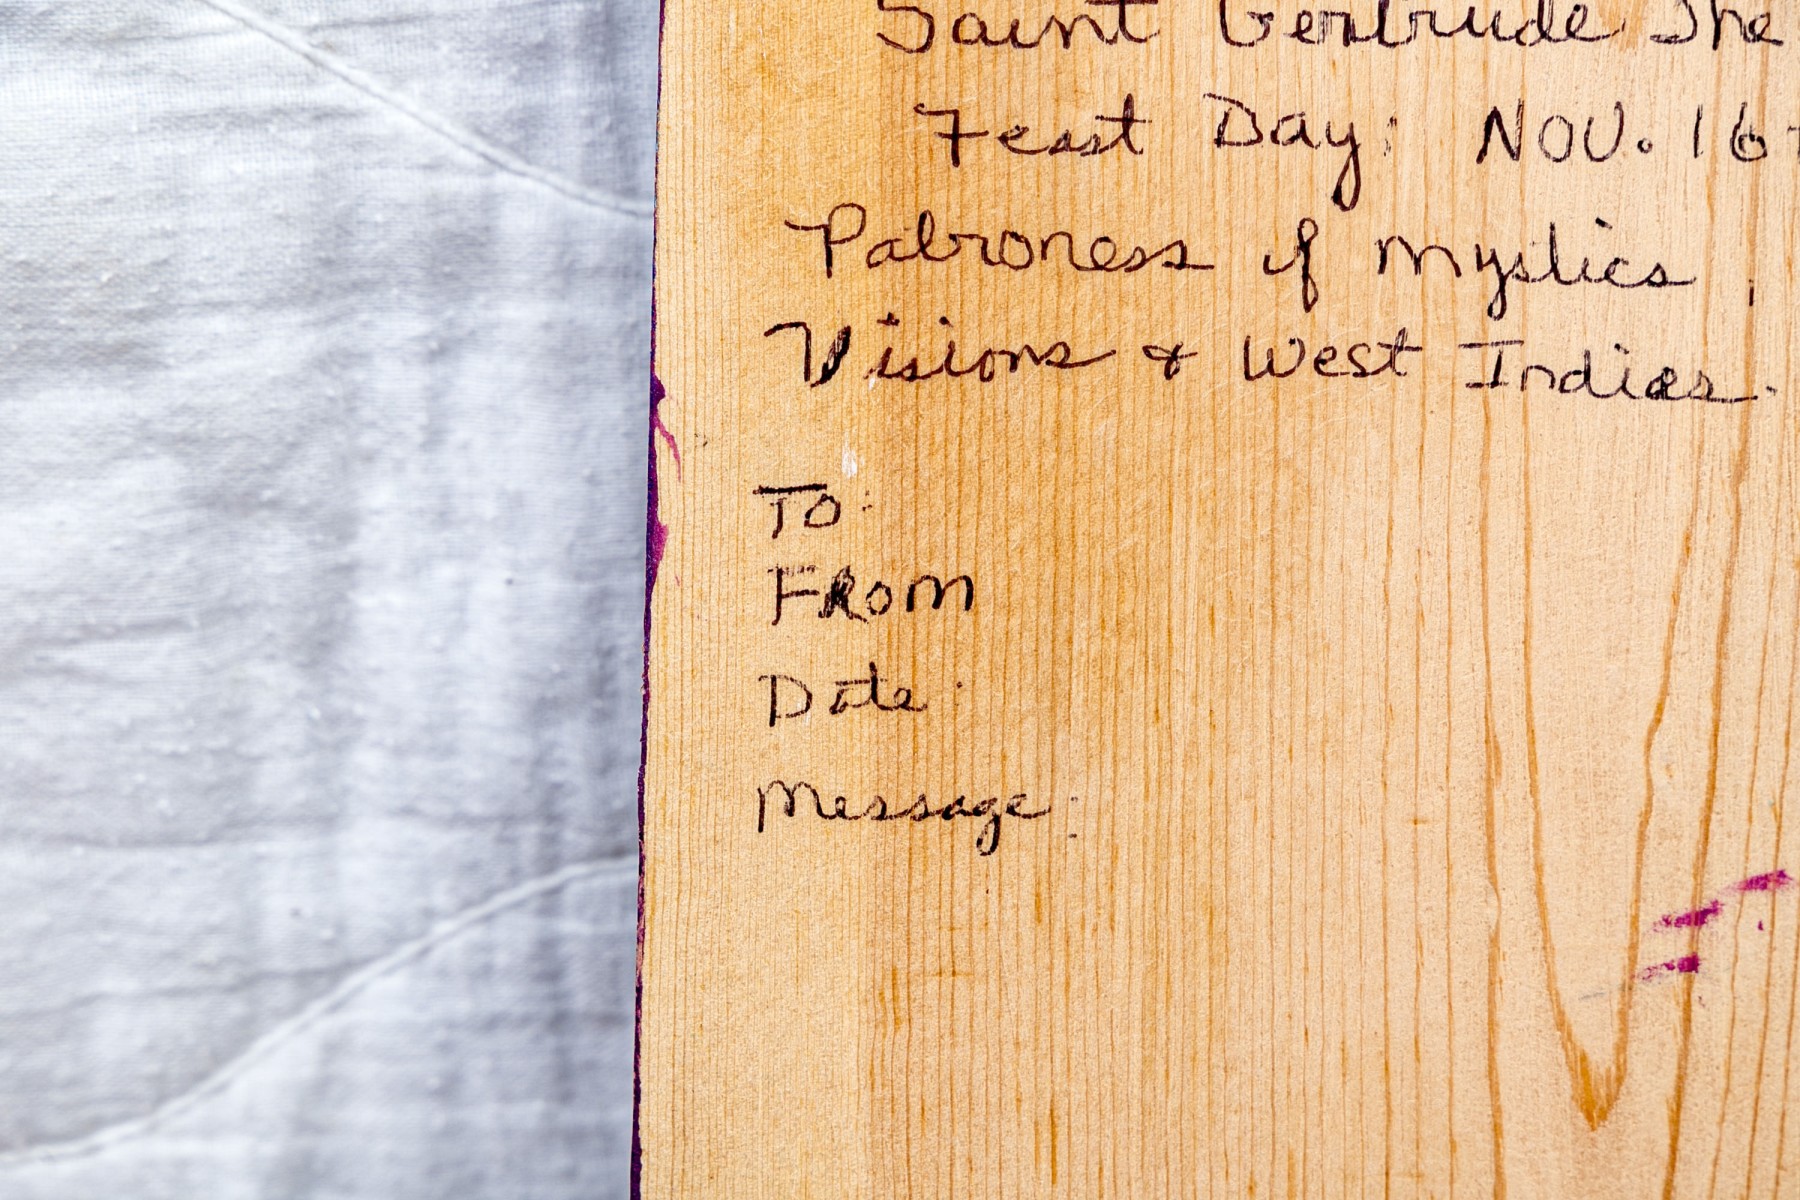 Saint Gertrude The
Feast Day: NOV. 16
Patroness of Mystics,
Visions & West Indies.
To:
FROM
Date:
Message: